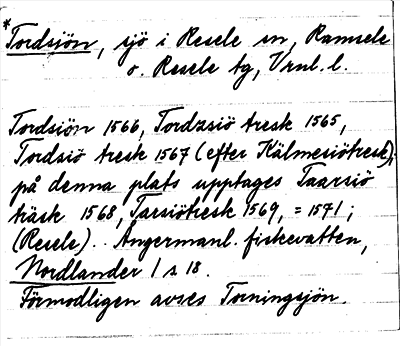 *Tordsjön, sjö i Resele sn, Ramsele
o. Resele tg, Vrnl. l.
Tordsiön 1566, Tordzsiö tresk 1565,
Tordsiö tresk 1567 (efter Kälmesiötresk);
på denna plats upptages Taarsiö
träsk 1568, Tarsiötresk 1569, = 1571;
(Resele). . Ångermanl. fiskevatten,
Nordlander 1 s 18.
Förmodligen avses Torningsjön.